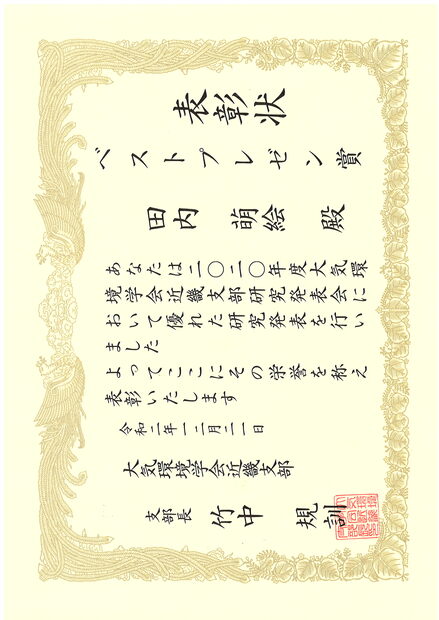 表彰状
ベストプレゼン賞
田内 萌絵 殿
あなたは二〇二〇年度大気環
境学会近畿支部研究発表会に
おいて優れた研究発表を行い
ました
よってここにその栄誉を称え
表彰いたします
令和二年一二月二一日
大気環境学会近畿支部
支部長 竹中 規訓